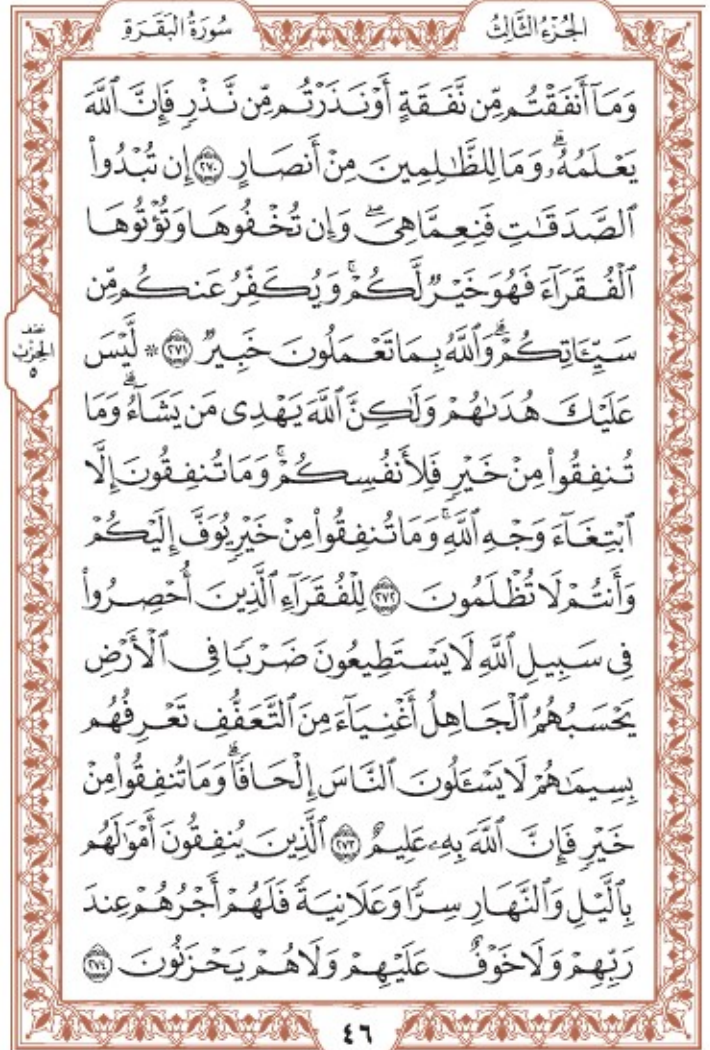 الجُزْءُ الثَّالِثُ
سُورَةُ البَقَرَةِ
وَمَآ أَنفَقْتُم مِّن نَّفَقَةٍ أَوْ نَذَرْتُم مِّن نَّذْرٍ فَإِنَّ ٱللَّهَ
يَعْلَمُهُۥۗ وَمَا لِلظَّٰلِمِينَ مِنْ أَنصَارٍ ۝٢٧٠ إِن تُبْدُوا۟
ٱلصَّدَقَٰتِ فَنِعِمَّا هِىَۖ وَإِن تُخْفُوهَا وَتُؤْتُوهَا
ٱلْفُقَرَآءَ فَهُوَ خَيْرٌ لَّكُمْۚ وَيُكَفِّرُ عَنكُم مِّن
سَيِّـَٔاتِكُمْۗ وَٱللَّهُ بِمَا تَعْمَلُونَ خَبِيرٌ ۝٢٧١ * لَّيْسَ
عَلَيْكَ هُدَىٰهُمْ وَلَٰكِنَّ ٱللَّهَ يَهْدِى مَن يَشَآءُۗ وَمَا
تُنفِقُوا۟ مِنْ خَيْرٍ فَلِأَنفُسِكُمْۚ وَمَا تُنفِقُونَ إِلَّا
ٱبْتِغَآءَ وَجْهِ ٱللَّهِۚ وَمَا تُنفِقُوا۟ مِنْ خَيْرٍ يُوَفَّ إِلَيْكُمْ
وَأَنتُمْ لَا تُظْلَمُونَ ۝٢٧٢ لِلْفُقَرَآءِ ٱلَّذِينَ أُحْصِرُوا۟
فِى سَبِيلِ ٱللَّهِ لَا يَسْتَطِيعُونَ ضَرْبًا فِى ٱلْأَرْضِ
يَحْسَبُهُمُ ٱلْجَاهِلُ أَغْنِيَآءَ مِنَ ٱلتَّعَفُّفِ تَعْرِفُهُم
بِسِيمَٰهُمْ لَا يَسْـَٔلُونَ ٱلنَّاسَ إِلْحَافًاۗ وَمَا تُنفِقُوا۟ مِنْ
خَيْرٍ فَإِنَّ ٱللَّهَ بِهِۦ عَلِيمٌ ۝٢٧٣ ٱلَّذِينَ يُنفِقُونَ أَمْوَٰلَهُم
بِٱلَّيْلِ وَٱلنَّهَارِ سِرًّا وَعَلَانِيَةً فَلَهُمْ أَجْرُهُمْ عِندَ
رَبِّهِمْ وَلَا خَوْفٌ عَلَيْهِمْ وَلَا هُمْ يَحْزَنُونَ ۝٢٧٤
نصف
الحِزْبِ
٥
٤٦